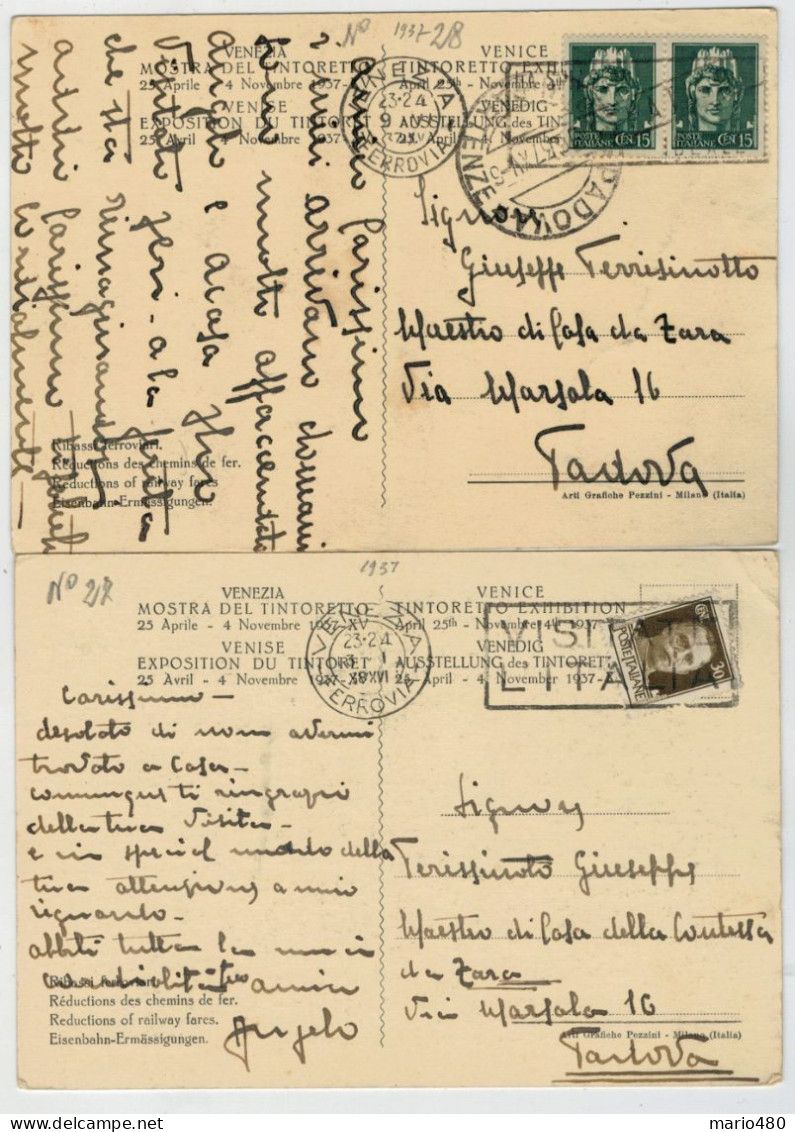 No 1937 28
VENEZIA
MOSTRA DEL TINTORETTO
25 Aprile - 4 Novembre 1937
VENISE
EXPOSITION DU TINTORET
25 Avril - 4 Novembre 1937
VENICE
TINTORETTO EXHIBITION
April 25th - Novembre 4th
VENEDIG
AUSSTELLUNG des TIN
25. April - 4. Novembe
VENEZIA
23-24
9 VI
FERROVIA
PADOVA
PARTENZE
POSTE ITALIANE CENT 15
POSTE ITALIANE CENT 15
Amico Carissimo
i miei arrivano domani
sono molto affaccendato
Angelo e a casa
visitato Ieri - a la
che sta
molto cordialmente
Signor
Giuseppe Terrisinotto
Maestro di Casa da Zara
Via Marsala 16
Padova
Ribassi ferroviari.
Réductions des chemins de fer.
Reductions of railway fares
Eisenbahn-Ermässigungen.
Arti Grafiche Pezzini - Milano (Italia)
No 27
1937
VENEZIA
MOSTRA DEL TINTORETTO
25 Aprile - 4 Novembre 1937-XV
VENISE
EXPOSITION DU TINTORET
25 Avril - 4 Novembre 1937-XV
VENICE
TINTORETTO EXHIBITION
April 25th - Novembre 4th 1937-
VENEDIG
AUSSTELLUNG des TINTORETT
25. April - 4. Novembe 1937-X
VENEZIA
23-24
FERROVIA
VISITATE
L'ITALIA
POSTE ITALIANE 30
Carissimo -
desolato di non avermi
trovato a Casa -
comunque ti ringrazio
della tua Visita -
e in special modo della
tua attenzione a mio
riguardo -
abbiti tutta la mia
cordialità tuo amico
Angelo
Signor
Terissinoto Giuseppe
Maestro di Casa della Contessa
da Zara
Via Marsala 16
Padova
Ribassi ferroviari.
Réductions des chemins de fer.
Reductions of railway fares.
Eisenbahn-Ermässigungen.
Arti Grafiche Pezzini - Milano (Italia)
mario480